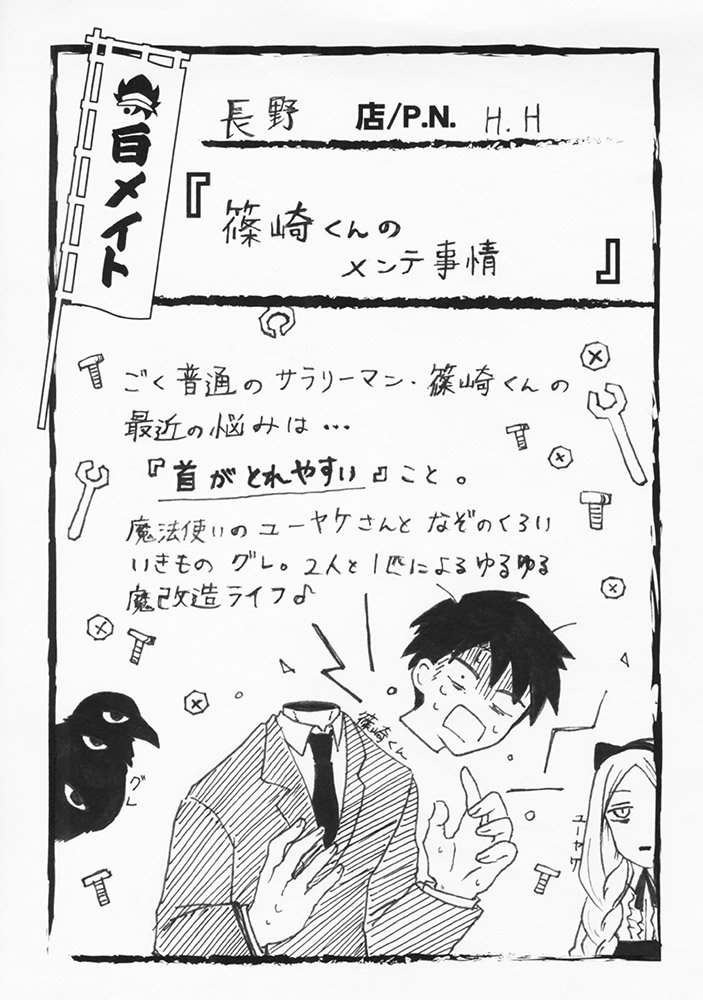 白メイト
長野 店/P.N. H.H
『篠崎くんの
メンテ事情』
ごく普通のサラリーマン・篠崎くんの
最近の悩みは…
『首がとれやすい』こと。
魔法使いのユーヤケさんと なぞのくろい
いきもの グレ。2人と1匹によるゆるゆる
魔改造ライフ♪
篠崎くん
グレ
ユーヤケ